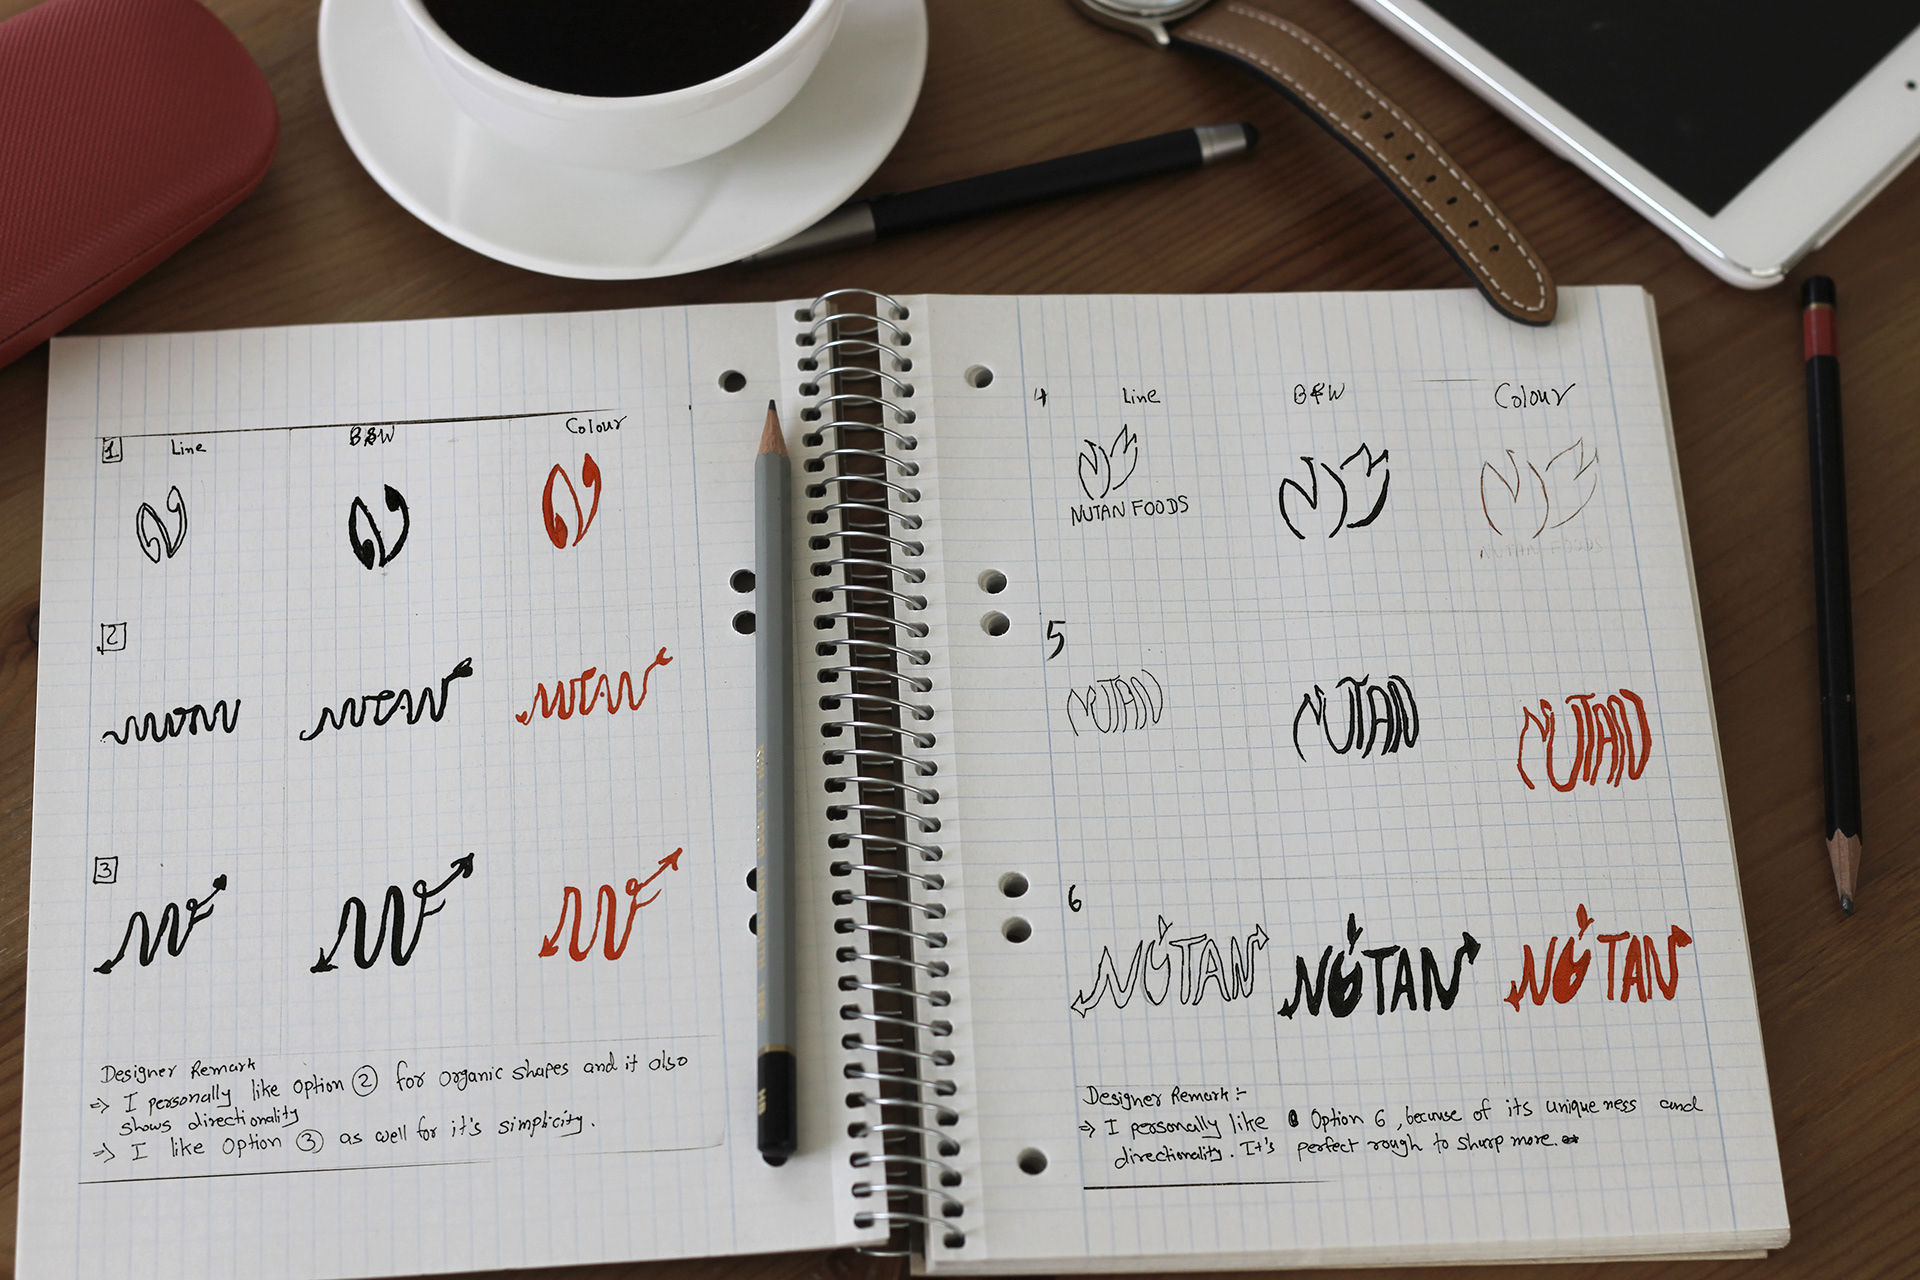 1 Line B&W Colour
2
NUTAN NUTAN
3
Designer Remark
⇒ I personally like option ② for organic shapes and it also
shows directionality
⇒ I like option ③ as well for it's simplicity.
4 Line B&W Colour
NUTAN FOODS NUTAN FOODS
5
NUTAN NUTAN NUTAN
6
NUTAN NUTAN NUTAN
Designer Remark :-
⇒ I personally like Option 6, because of its uniqueness and
directionality. It's perfect rough to sharp more.
HB